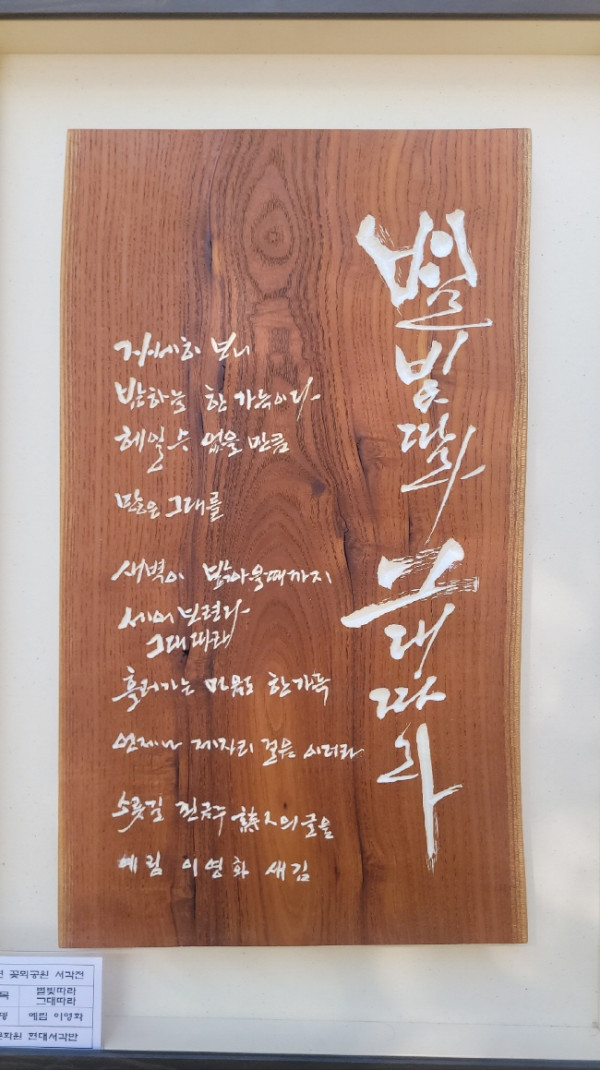 별빛따라
그대따라
자세히 보니
밤하늘 한 가득이다
헤일 수 없을 만큼
많은 그대를
새벽이 밝아올때까지
세어보련다
그대따라
흘러가는 마음도 한가득
언제나 제자리 걸음 이더라
전금주 詩人의 글을
예림 이영화 새김
꽃뫼공원 서각전
별빛따라
그대따라
예림 이영화
현대서각반